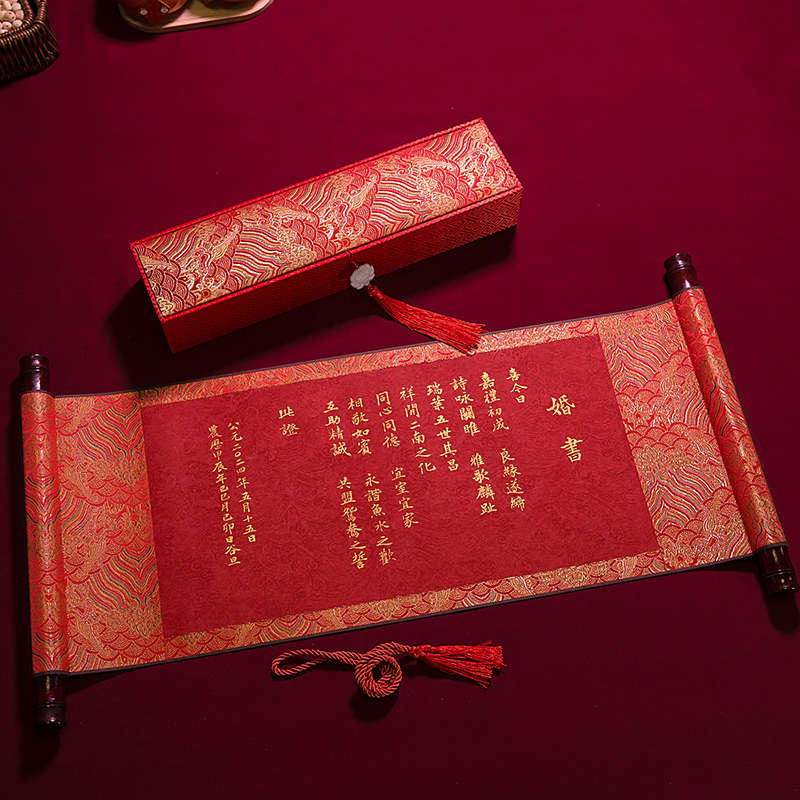 婚書
喜今日
嘉禮初成 良緣遂締
詩咏關雎 雅歌麟趾
瑞葉五世其昌
祥開二南之化
同心同德 宜室宜家
相敬如賓 永諧魚水之歡
互助精誠 共盟鴛鴦之誓
此證
公元二〇二四年五月十五日
農曆甲辰年己巳月己卯日谷旦